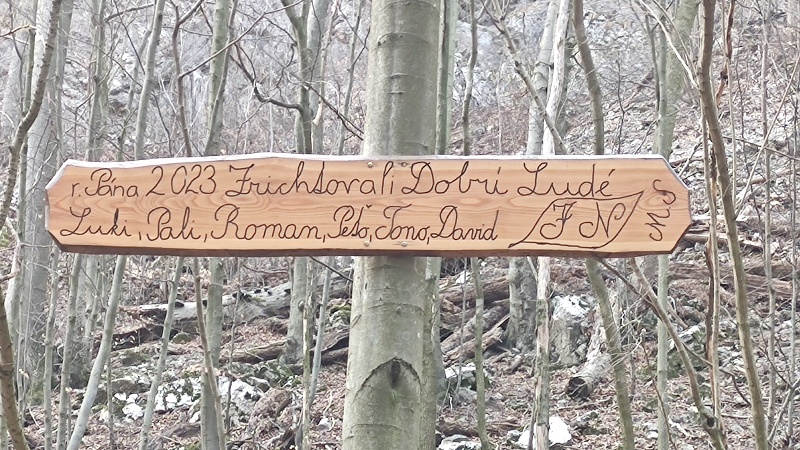 r. Pána 2023 Zrichtovali Dobrí Ludé
Luki, Pali, Roman, Peťo, Tono, David FN MS